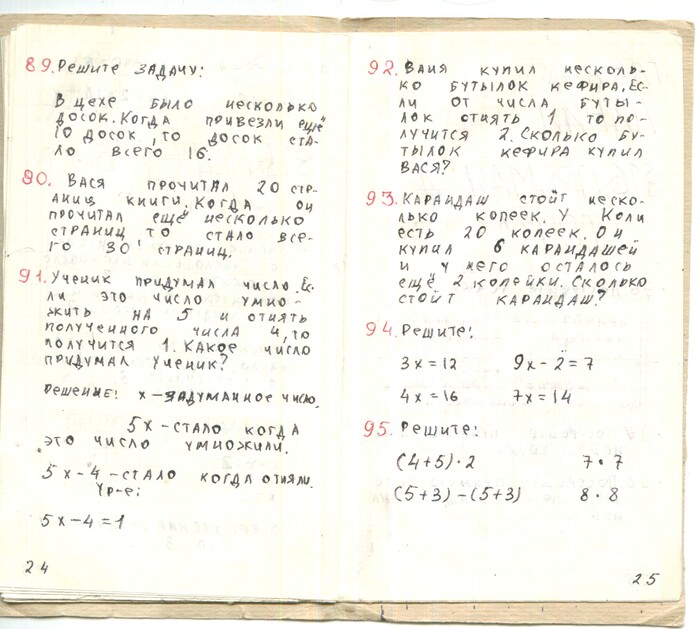 89. Решите задачу:
В цехе было несколько
досок. Когда привезли ещё
10 досок, то досок ста-
ло всего 16.
90. Вася прочитал 20 стр-
аниц книги. Когда он
прочитал ещё несколько
страниц то стало все-
го 30 страниц.
91. Ученик придумал число. Ес-
ли это число умно-
жить на 5 и отнять
полученного числа 4, то
получится 1. Какое число
придумал ученик?
Решение: х – задуманное число.
5х – стало когда
это число умножили.
5х – 4 – стало когда отняли.
Ур-е:
5х – 4 = 1
24
92. Ваня купил несколь-
ко бутылок кефира. Ес-
ли от числа буты-
лок отнять 1 то по-
лучится 2. Сколько бу-
тылок кефира купил
Вася?
93. Карандаш стоит неско-
лько копеек. У Коли
есть 20 копеек. Он
купил 6 карандашей
и у него осталось
ещё 2 копейки. Сколько
стоит карандаш?
94. Решите:
3х = 12 9х – 2 = 7
4х = 16 7х = 14
95. Решите:
(4+5) · 2 7 · 7
(5+3) – (5+3) 8 · 8
25